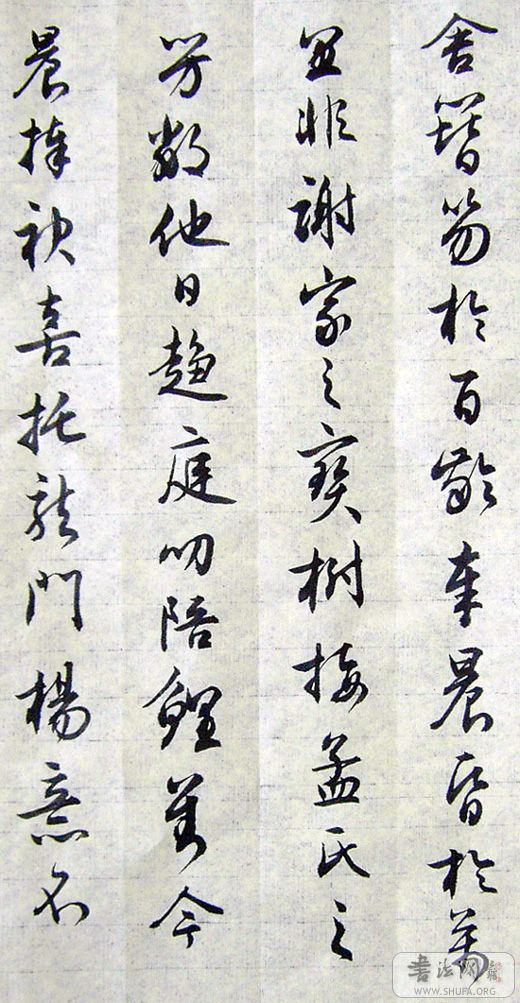 舍簪笏於百齡奉晨昏於萬
里非謝家之寶樹接孟氏之
芳鄰他日趨庭叨陪鯉對今
晨捧袂喜托龍門楊意不
書法网
WWW.SHUFA.ORG